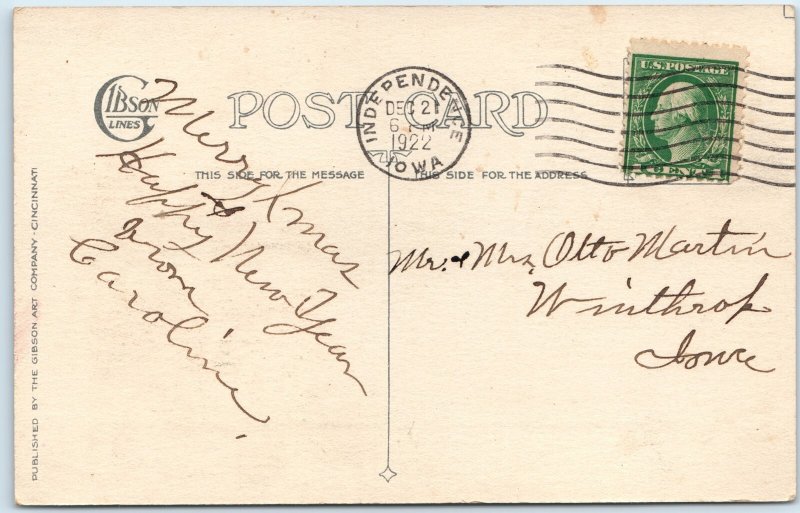 GIBSON
LINES
POST CARD
INDEPENDENCE
DEC 21
6 PM
1922
IOWA
U.S. POSTAGE
THIS SIDE FOR THE MESSAGE
THIS SIDE FOR THE ADDRESS
Merry Xmas
& Happy New Year
from
Caroline.
Mr. & Mrs. Otto Martin
Winthrop
Iowa
PUBLISHED BY THE GIBSON ART COMPANY - CINCINNATI